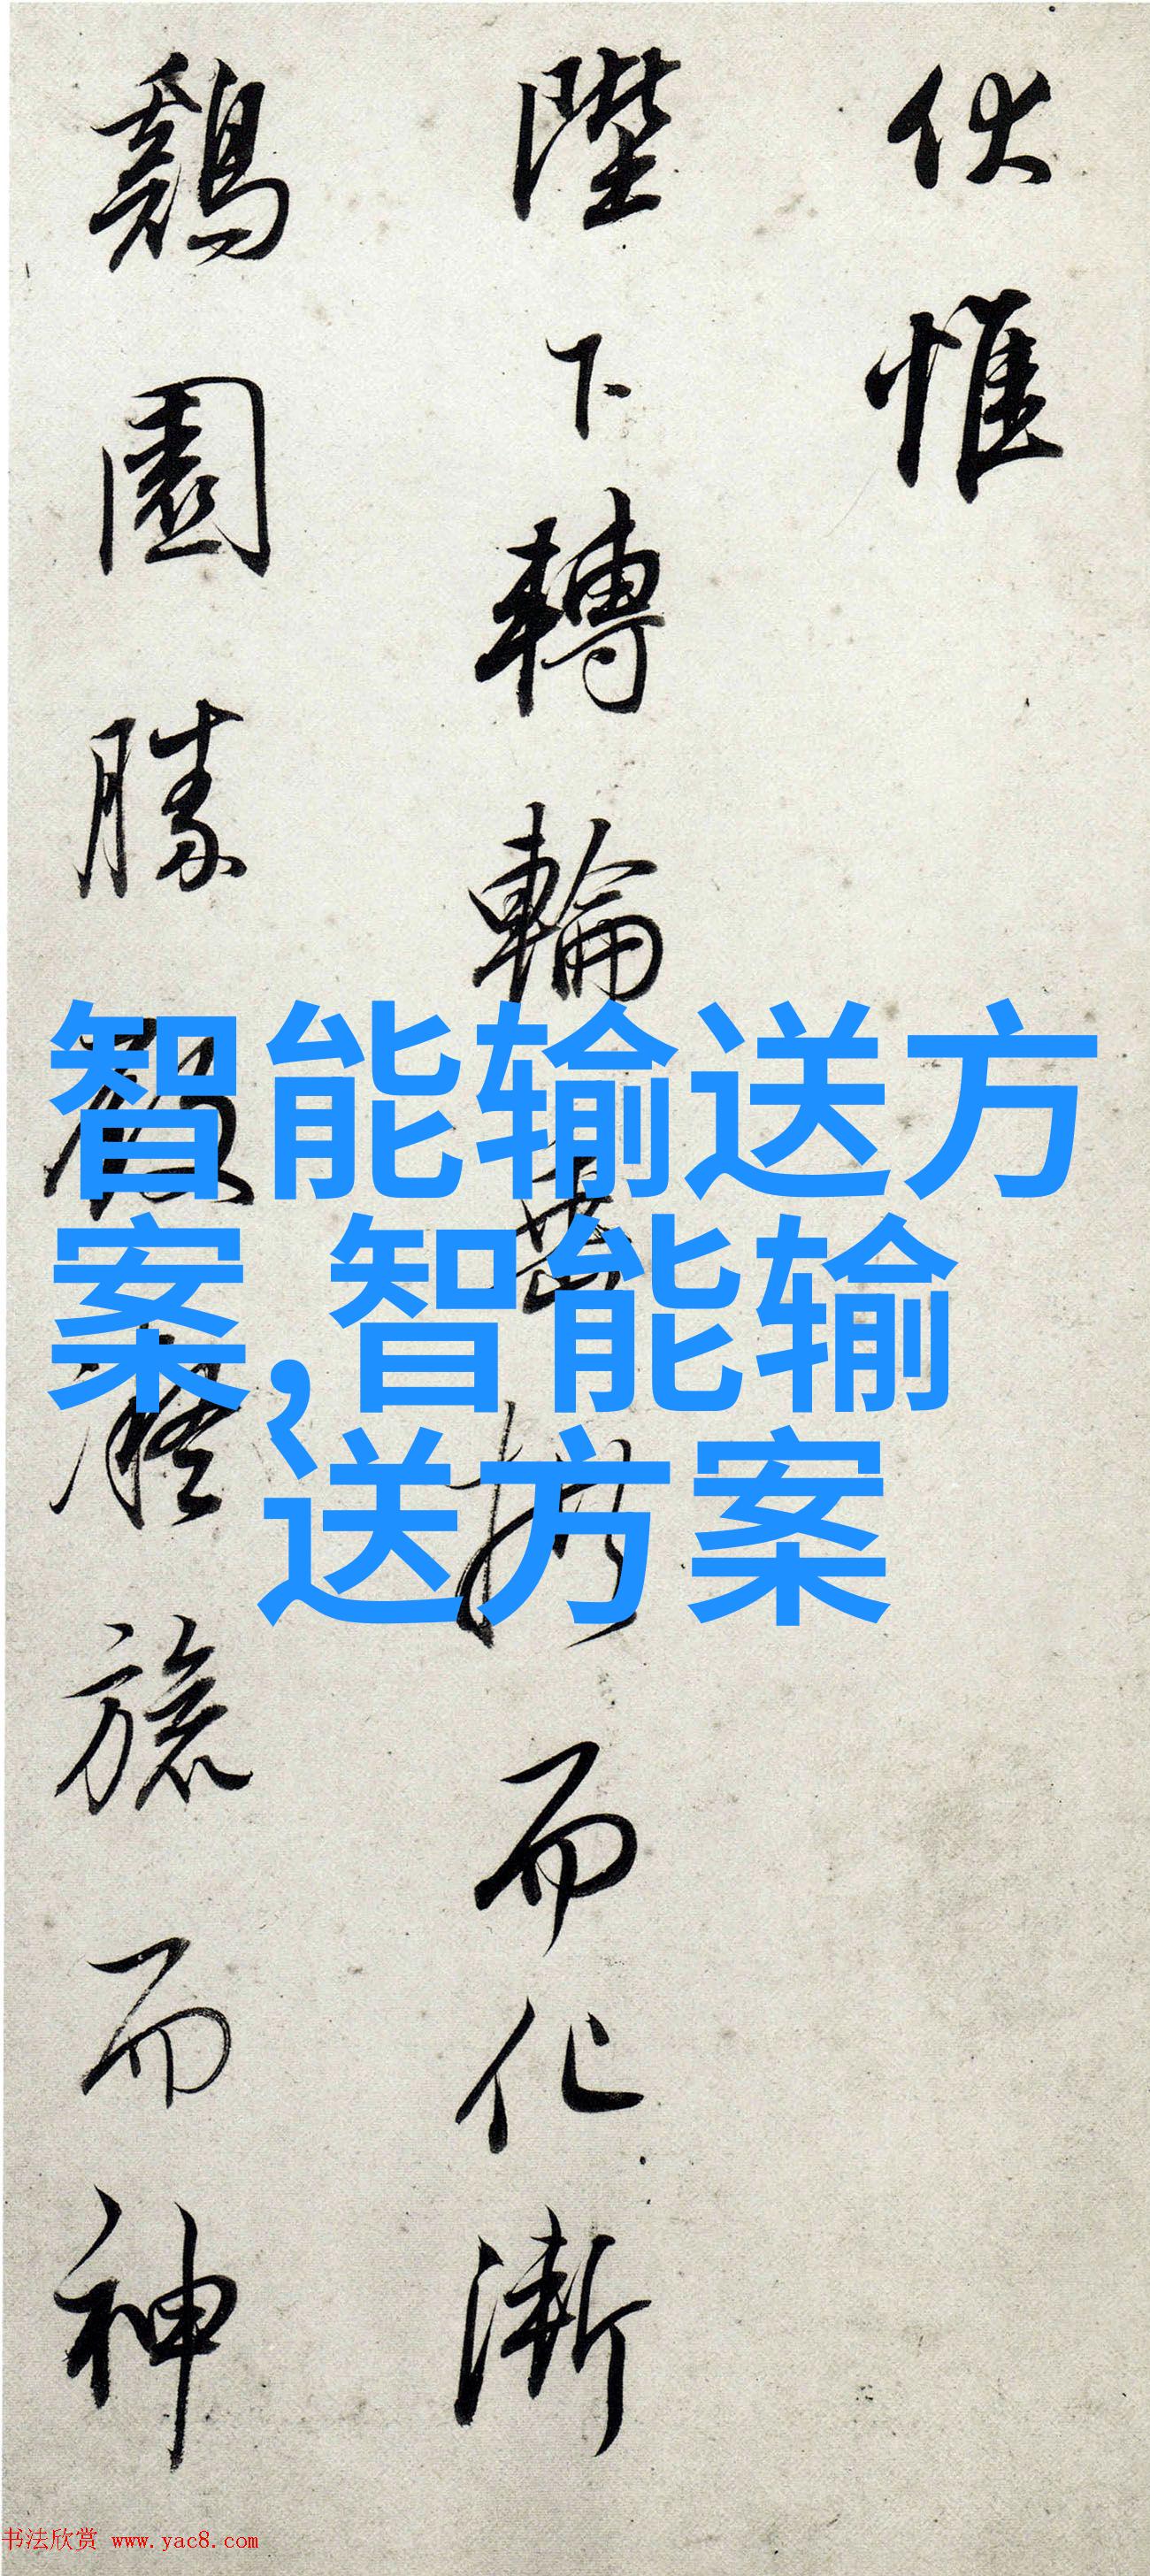 伏惟
陛下轉輪垂拱而化漸
鷄園勝殿凝旒而神
智能输送方
案,智能输
送方案
书法欣赏 www.yac8.com